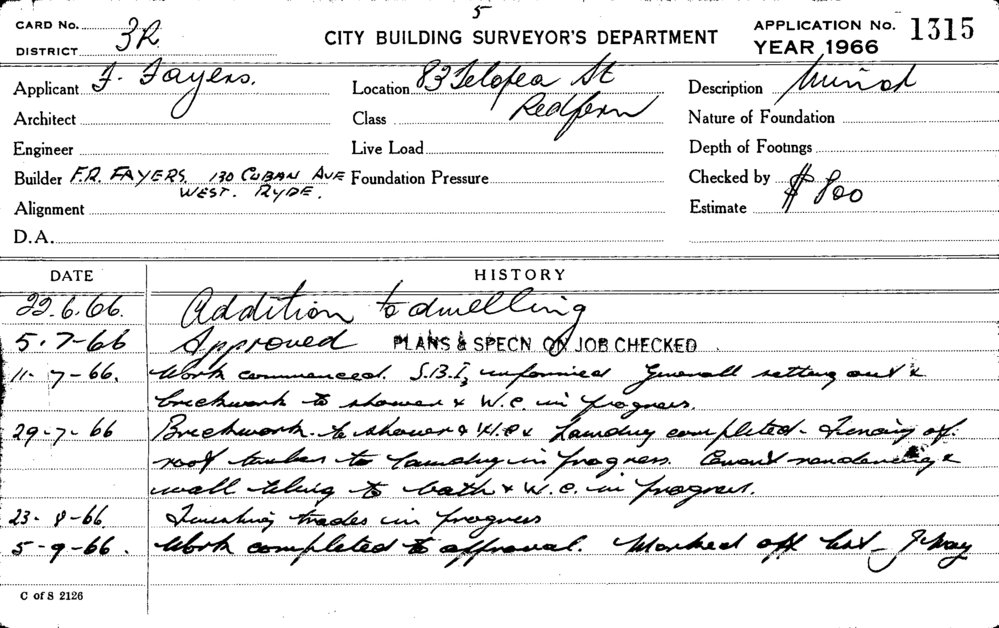 5
CARD No.
DISTRICT 3R
CITY BUILDING SURVEYOR'S DEPARTMENT
APPLICATION No. 1315
YEAR 1966
Applicant F. Fayers.
Location 83 Telopea St
Redfern
Description Minor
Architect
Class
Nature of Foundation
Engineer
Live Load
Depth of Footings
Builder F.R. FAYERS, 130 CUBAN AVE
WEST. RYDE.
Foundation Pressure
Checked by
Alignment
Estimate $800
D.A.
DATE HISTORY
22.6.66. Addition to dwelling
5-7-66 Approved PLANS & SPECN ON JOB CHECKED
11-7-66. Work commenced. S.B.I. informed Generall setting out &
brickwork to shower & W.C. in progress.
29-7-66 Brickwork to shower & W.C & Laundry completed. of
roof timber to laundry in progress. Cement rendering &
wall tiling to bath & W.C. in progress.
23-8-66. Finishing trades in progress
5-9-66. Work completed to approval. Marked off list
C of S 2126